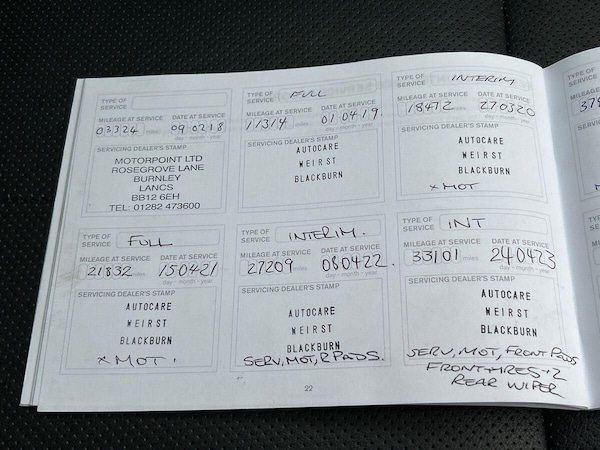 TYPE OF SERVICE
MILEAGE AT SERVICE DATE AT SERVICE
03324 miles 090218
day - month - year
SERVICING DEALER'S STAMP
MOTORPOINT LTD
ROSEGROVE LANE
BURNLEY
LANCS
BB12 6EH
TEL: 01282 473600
TYPE OF SERVICE FULL
MILEAGE AT SERVICE DATE AT SERVICE
11314 miles 010419.
day - month - year
SERVICING DEALER'S STAMP
AUTOCARE
WEIRST
BLACKBURN
TYPE OF SERVICE INTERIM
MILEAGE AT SERVICE DATE AT SERVICE
18472 miles 270320
day - month - year
SERVICING DEALER'S STAMP
AUTOCARE
WEIRST
BLACKBURN
x MOT
TYPE OF SERVICE FULL
MILEAGE AT SERVICE DATE AT SERVICE
21832 miles 150421
day - month - year
SERVICING DEALER'S STAMP
AUTOCARE
WEIRST
BLACKBURN
x MOT.
TYPE OF SERVICE INTERIM.
MILEAGE AT SERVICE DATE AT SERVICE
27209 miles 080422.
day - month - year
SERVICING DEALER'S STAMP
AUTOCARE
WEIRST
BLACKBURN
SERV, MOT, R PADS.
TYPE OF SERVICE INT
MILEAGE AT SERVICE DATE AT SERVICE
33101 miles 240423
day - month - year
SERVICING DEALER'S STAMP
AUTOCARE
WEIRST
BLACKBURN
SERV, MOT, FRONT PADS
REAR WIPER
22